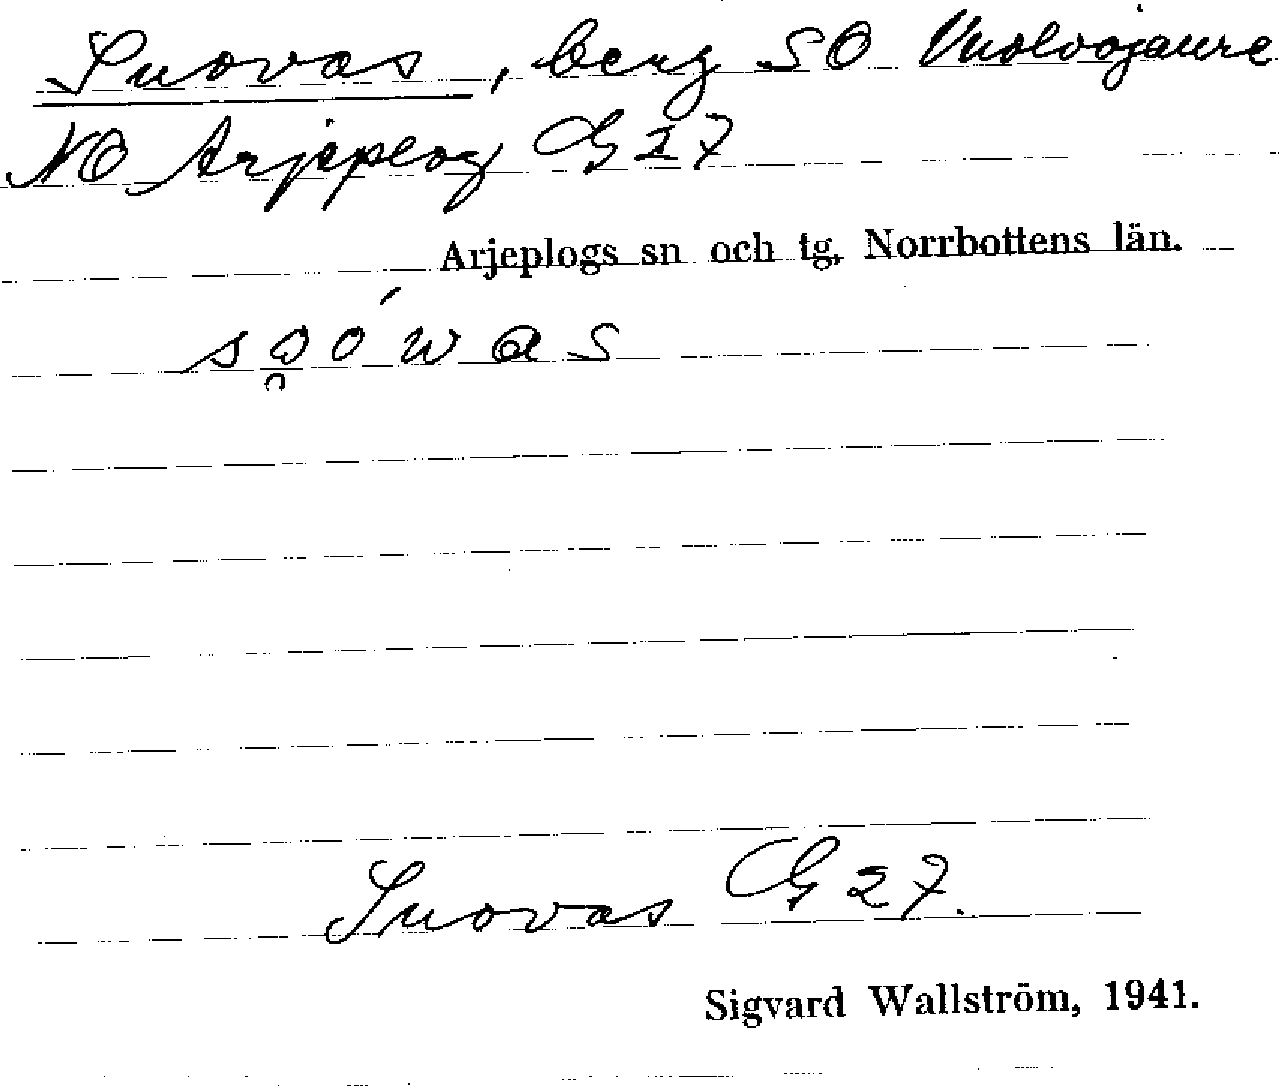 Suovas, berg SO Vuolvojaure
NO Arjeplog G 27
Arjeplogs sn och tg. Norrbottens län.
Suovas G 27.
Sigvard Wallström, 1941.